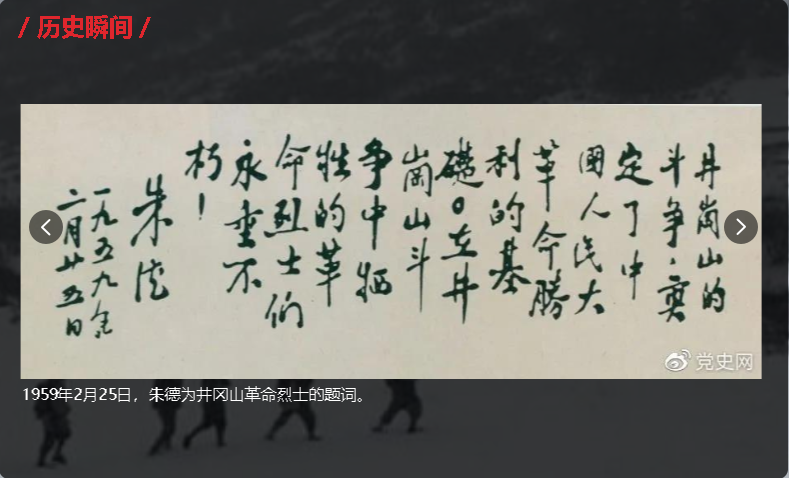 / 历史瞬间 /
井崗山的
斗争、奠
定了中
國人民大
革命勝
利的基
礎。在井
崗山斗
争中牺
牲的革
命烈士们
永垂不
朽！
朱德
一九五九年
二月廿五日
党史网
1959年2月25日，朱德为井冈山革命烈士的题词。